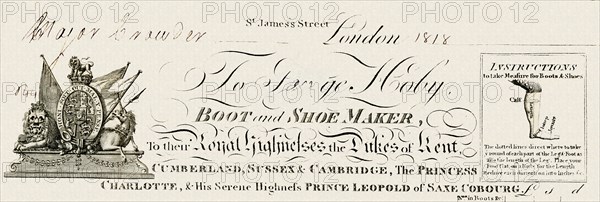 St. James's Street
Major Crowder London 1818
To George Hoby
BOOT and SHOE MAKER,
To their Royal Highnesses the Dukes of Kent,
CUMBERLAND, SUSSEX & CAMBRIDGE, THE PRINCESS
CHARLOTTE, & His Serene Highness PRINCE LEOPOLD of SAXE COBOURG.
£ s d
INSTRUCTIONS
to take Measure for Boots & Shoes
Calf
The dotted lines direct where to take
round of each part of the Leg & Foot as
the length of the Leg. Place your
Foot flat on a Rule for the Length